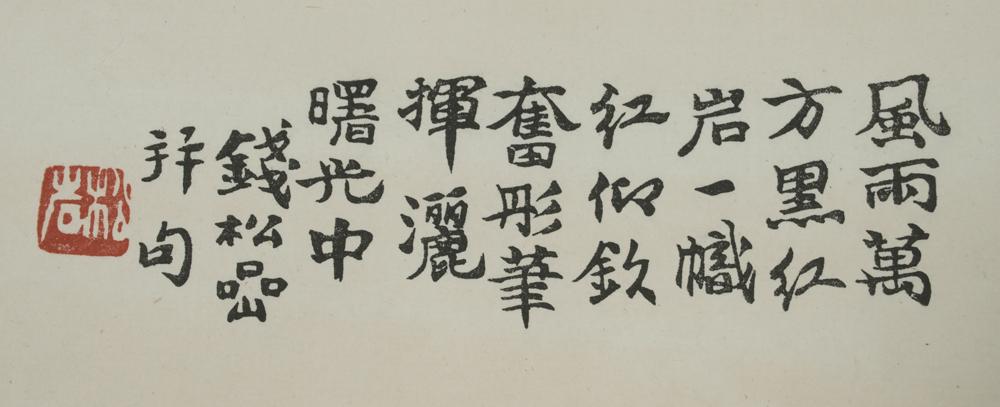 風雨萬
方黑红
岩一幟
红仰欽
奮彤筆
揮灑
曙光中
錢松嵒
并句
松岩